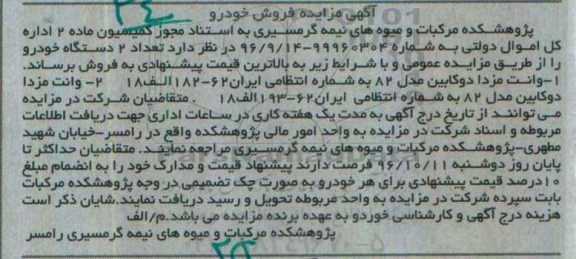 آگهی مزایده فروش خودرو
پژوهشکده مرکبات و میوه های نیمه گرمسیری به استناد مجوز کمیسیون ماده ۲ اداره
کل اموال دولتی به شماره ۹۹۹۶۰۳۰۴-۹۶/۹/۱۴ در نظر دارد تعداد ۲ دستگاه خودرو
را از طریق مزایده عمومی و با شرایط زیر به بالاترین قیمت پیشنهادی به فروش برساند.
۱-وانت مزدا دوکابین مدل ۸۲ به شماره انتظامی ایران۶۲-۱۸۲الف۱۸ ۲- وانت مزدا
دوکابین مدل ۸۲ به شماره انتظامی ایران۶۲-۱۹۳الف۱۸ . متقاضیان شرکت در مزایده
می توانند از تاریخ درج آگهی به مدت یک هفته کاری در ساعات اداری جهت دریافت اطلاعات
مربوطه و اسناد شرکت در مزایده به واحد امور مالی پژوهشکده واقع در رامسر-خیابان شهید
مطهری-پژوهشکده مرکبات و میوه های نیمه گرمسیری مراجعه نمایند. متقاضیان حداکثر تا
پایان روز دوشنبه ۹۶/۱۰/۱۱ فرصت دارند پیشنهاد قیمت و مدارک خود را به انضمام مبلغ
۱۰درصد قیمت پیشنهادی برای هر خودرو به صورت چک تضمینی در وجه پژوهشکده مرکبات
بابت سپرده شرکت در مزایده به واحد مربوطه تحویل و رسید دریافت نمایند.شایان ذکر است
هزینه درج آگهی و کارشناسی خوردو به عهده برنده مزایده می باشد.م/الف
پژوهشکده مرکبات و میوه های نیمه گرمسیری رامسر